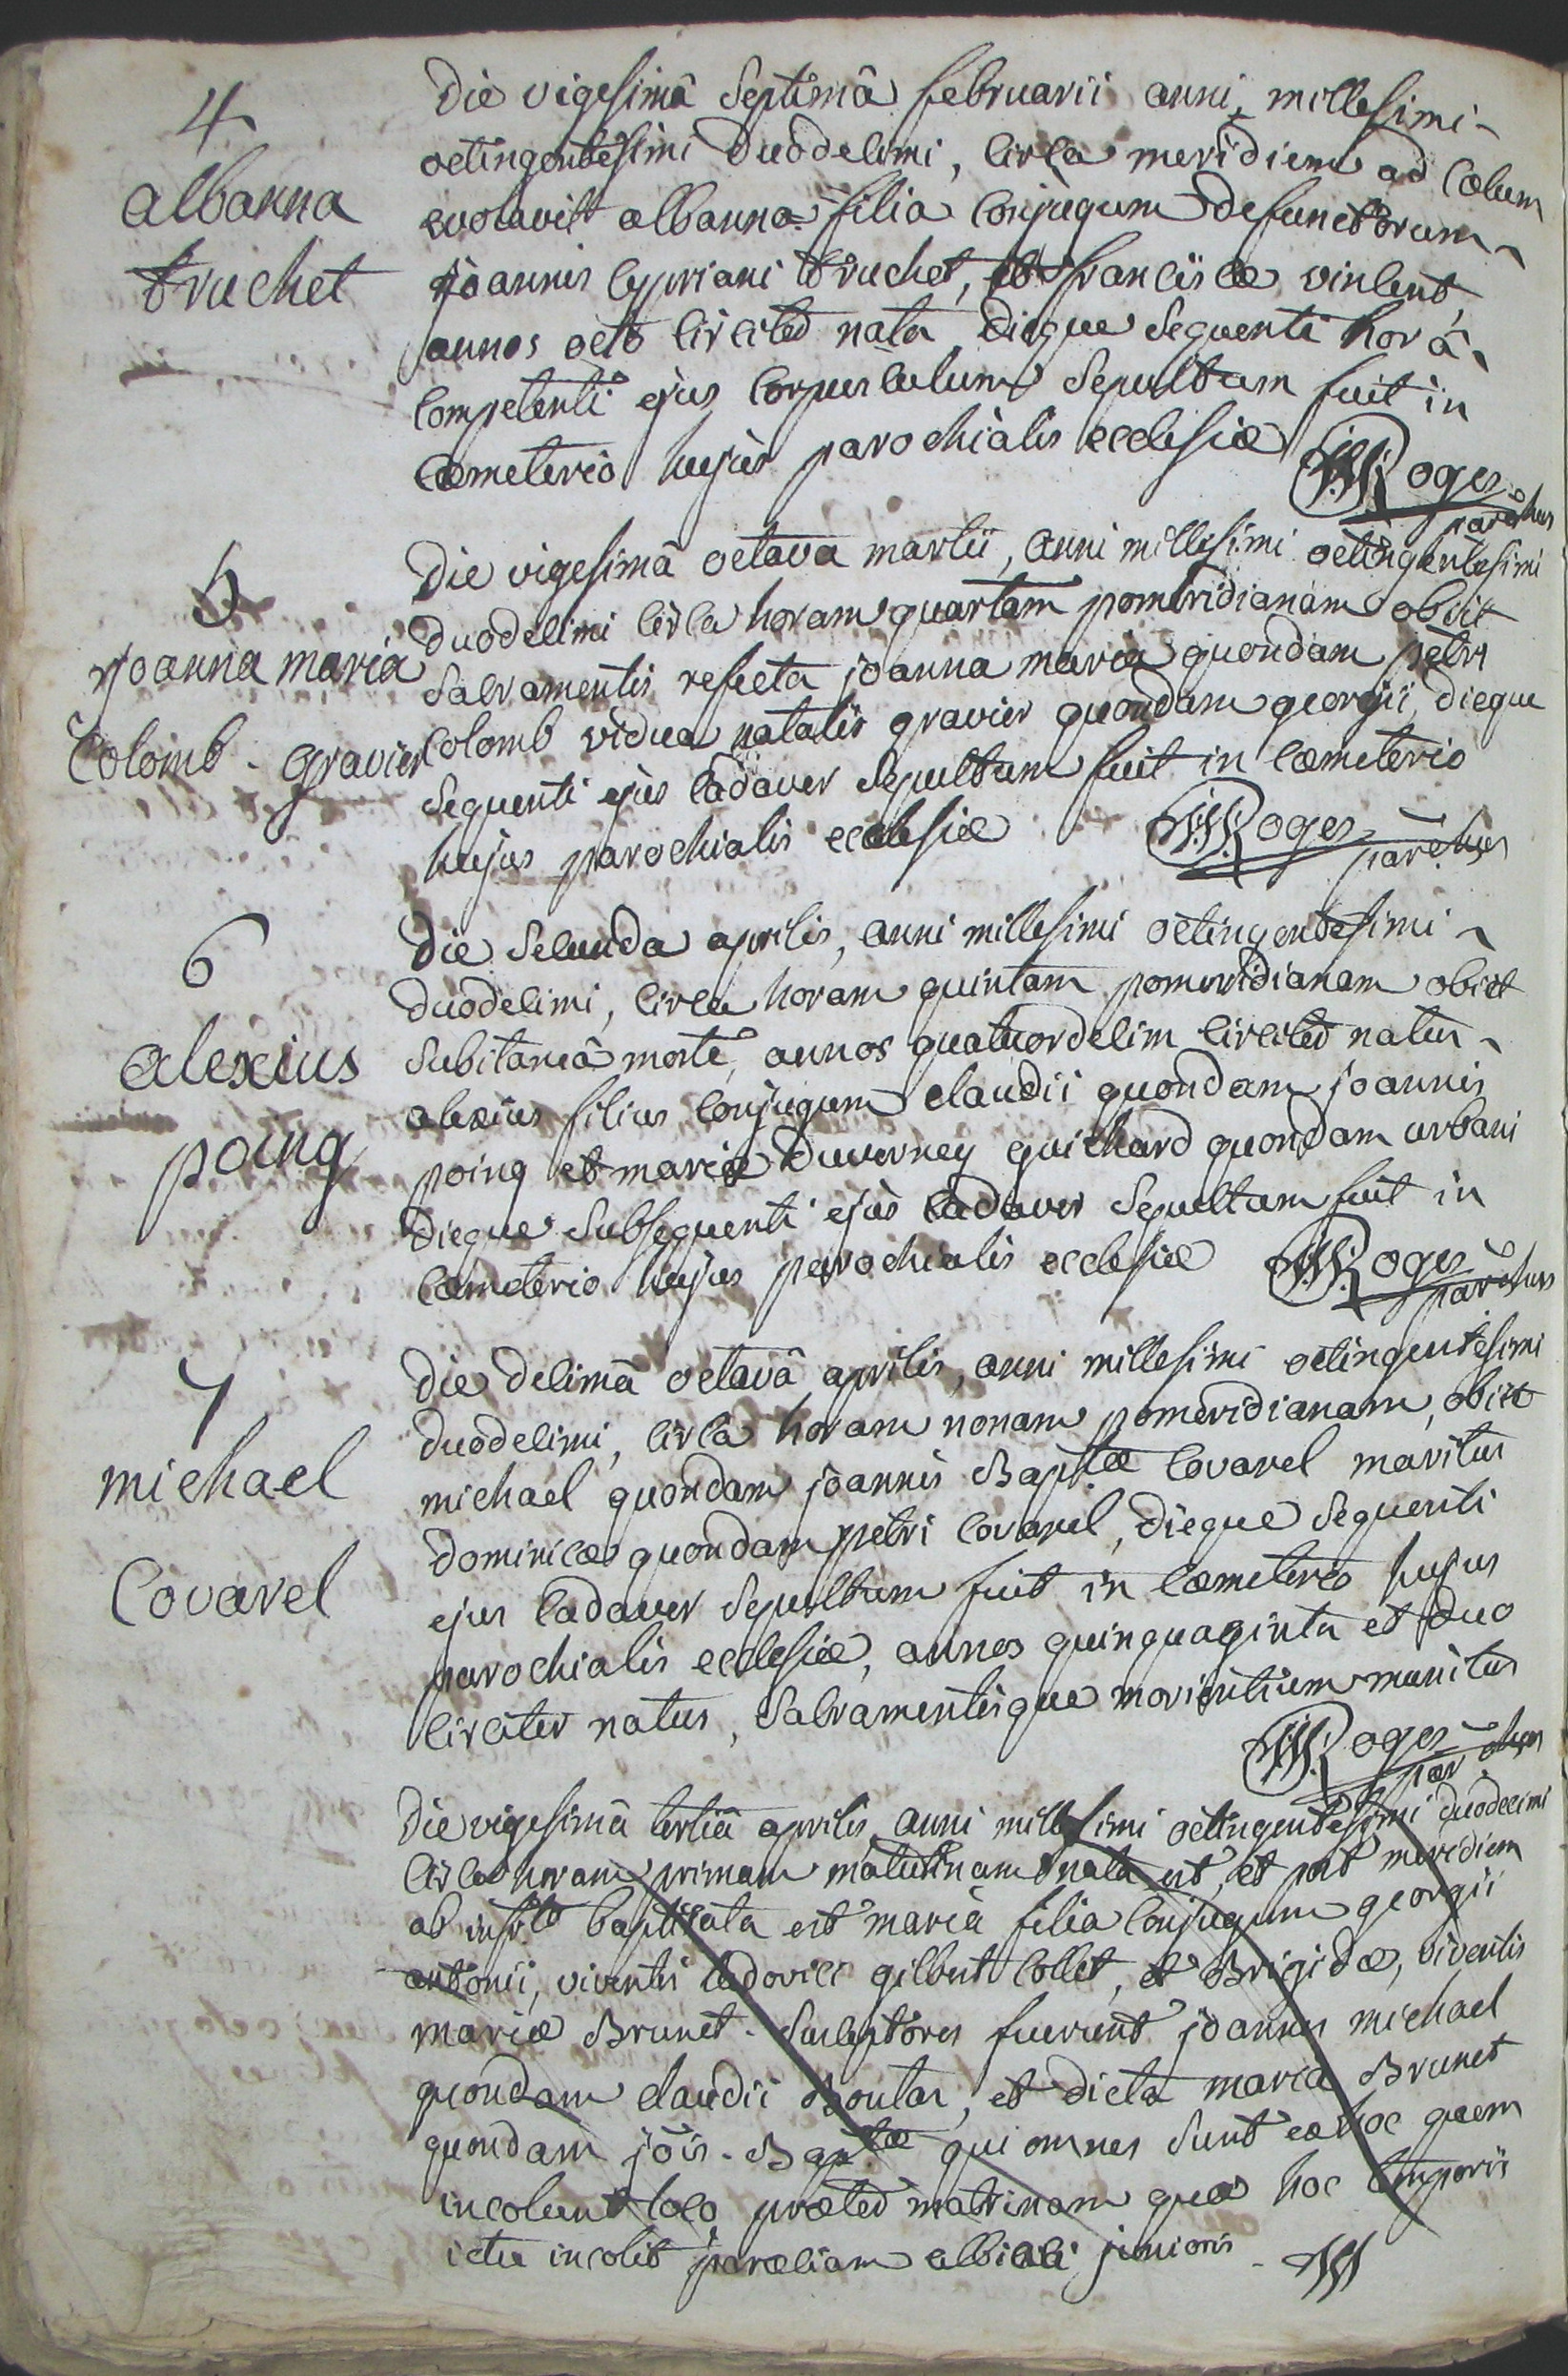 4
albanna
truchet
Die vigesimâ Septimâ februarii anni millesimi-
octingentesimi duodecimi, circa meridiem ad Cœlum
evolavit albanna filia Conjugum defunctorum
joannis Cypriani truchet, et franciscæ vincent,
annos octo circiter nata, dieque Sequenti horâ
Competenti ejus Corpusculum Sepultum fuit in
Cœmeterio hujus parochialis ecclesiæ
Roges
parochus
5
joanna maria
Colomb - gravier
Die vigesimâ octava martii, anni millesimi octingentesimi
duodecimi circa horam quartam pomeridianam obiit
Sacramentis refecta joanna maria quondam petri
Colomb vidua natalis gravier quondam georgii, dieque
Sequenti ejus Cadaver Sepultum fuit in Cœmeterio
hujus parochialis ecclesiæ
Roges
parochus
6
alexius
poing
Die Secunda aprilis, anni millesimi octingentesimi
duodecimi, circa horam quintam pomeridianam obiit
Subitaneâ morte, annos quatuordecim circiter natus
alexius filius Conjugum claudii quondam joannis
poing et mariæ duverney guichard quondam urbani
dieque Subsequenti ejus Cadaver Sepultum fuit in
Cœmeterio hujus parochialis ecclesiæ
Roges
parochus
7
michael
Covarel
Die decimâ octavâ aprilis, anni millesimi octingentesimi
duodecimi, circa horam nonam pomeridianam, obiit
michael quondam joannis Baptæ Covarel maritus
dominicæ quondam petri Covarel, dieque Sequenti
ejus Cadaver Sepultum fuit in Cœmeterio hujus
parochialis ecclesiæ, annos quinquaginta et duo
circiter natus, Sacramentisque morientium munitus
Roges
parochus
Die vigesimâ tertiâ aprilis, anni millesimi octingentesimi duodecimi
circa horam primam matutinam nata est, et post meridiem
ab infrto baptisata est maria filia Conjugum georgii
antonii, viventis ludovici gilbert Collet, et Brigidæ, viventis
mariæ Brunet. Susceptores fuerunt joannes michael
quondam claudii Boutas, et dicta maria Brunet
quondam jois. Baptæ qui omnes Sunt ex hoc quem
incolunt loco, præter matrinam quæ hoc temporis
ictu incolit paræciam albiaci junioris